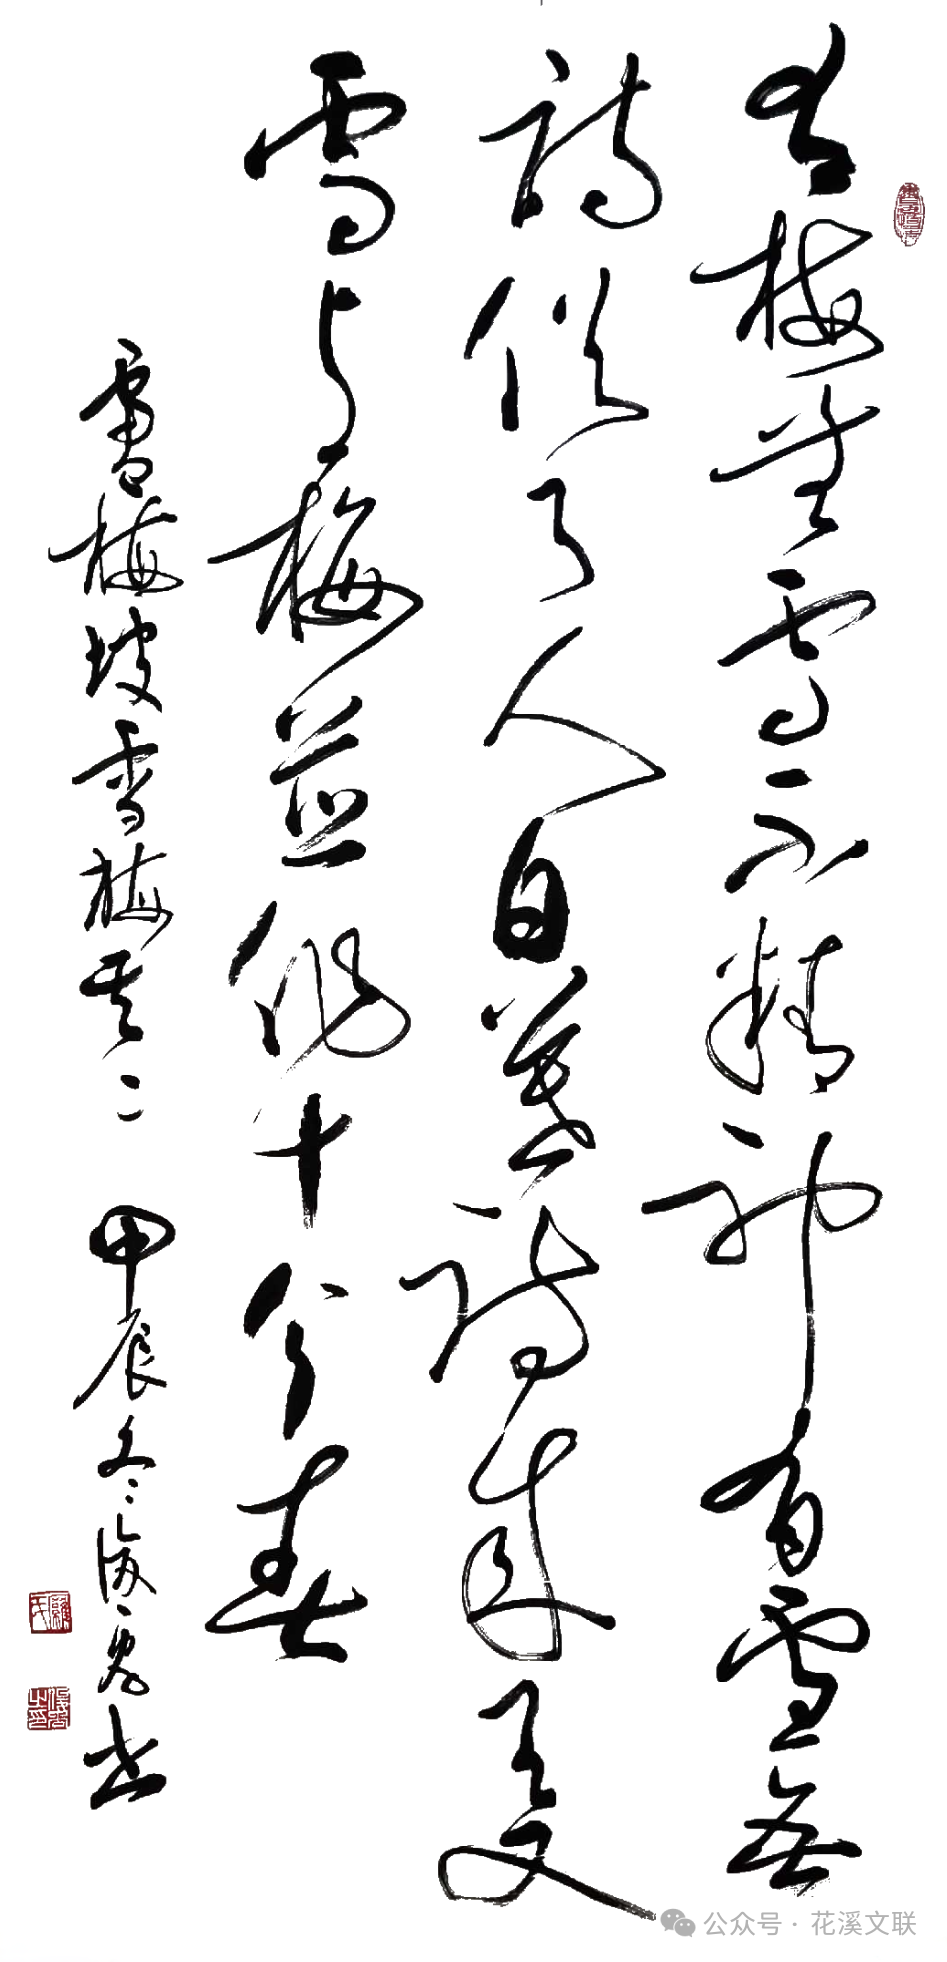 有梅無雪不精神有雪無
詩俗了人日暮詩成天又
雪与梅並作十分春
盧梅坡雪梅其二 甲辰冬 书
公众号 · 花溪文联